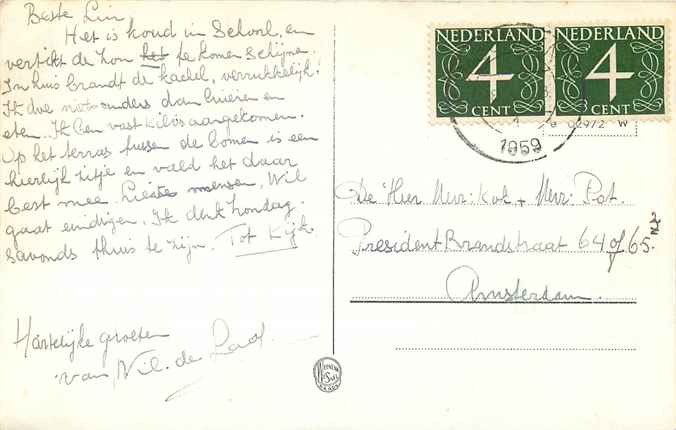 Beste Lin
Het is koud in Schoorl, en
vertikt de zon het te komen schijnen.
In huis brandt de kachel, verrukkelijk.
Ik doe niets anders dan luieren en
eten. Ik ben vast kilo's aangekomen.
Op het terras tussen de bomen is een
heerlijk zitje en valt het daar
best mee. mensen, Wil
gaat eindigen. Ik denk Zondag
savonds thuis te zijn. Tot Kijk
Hartelijke groeten
van Wil. de
NEDERLAND NEDERLAND
4 4
CENT CENT
1959
e 02972 w
De Heer Mevr: Kok + Mevr: Pot.
President Brandstraat 64 of 65
Amsterdam.